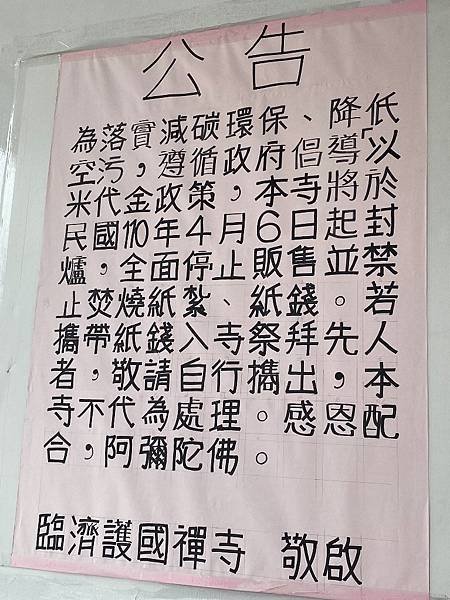 公告
為落實減碳環保、降低
空污，遵循政府倡導「以
米代金政策，本寺將於
民國110年4月6日起封
爐，全面停止販售並禁
止焚燒紙紮、紙錢。若
攜帶紙錢入寺祭拜先人
者，敬請自行攜出，本
寺不代為處理。感恩配
合，阿彌陀佛。
臨濟護國禪寺 敬啟